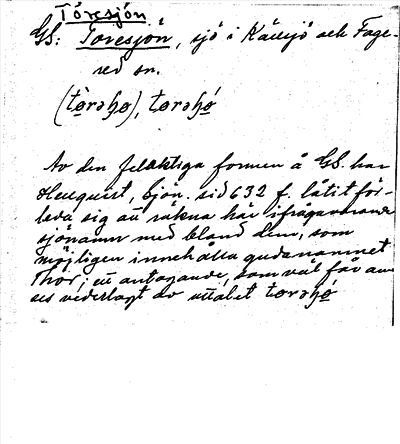 Töresjön
GS: Toresjön, sjö i Källsjö och Fage-
red sn.
(tòrəʃo), torəʃó
Av den felaktiga formen å GS. har
Hellquist, Sjön. sid 632 f. låtit för-
leda sig att räkna här ifrågavarande
sjönamn med bland dem, som
möjligen innehålla gudanamnet
Thor; ett antagande, som väl får an-
ses vederlagt av uttalet torəʃó